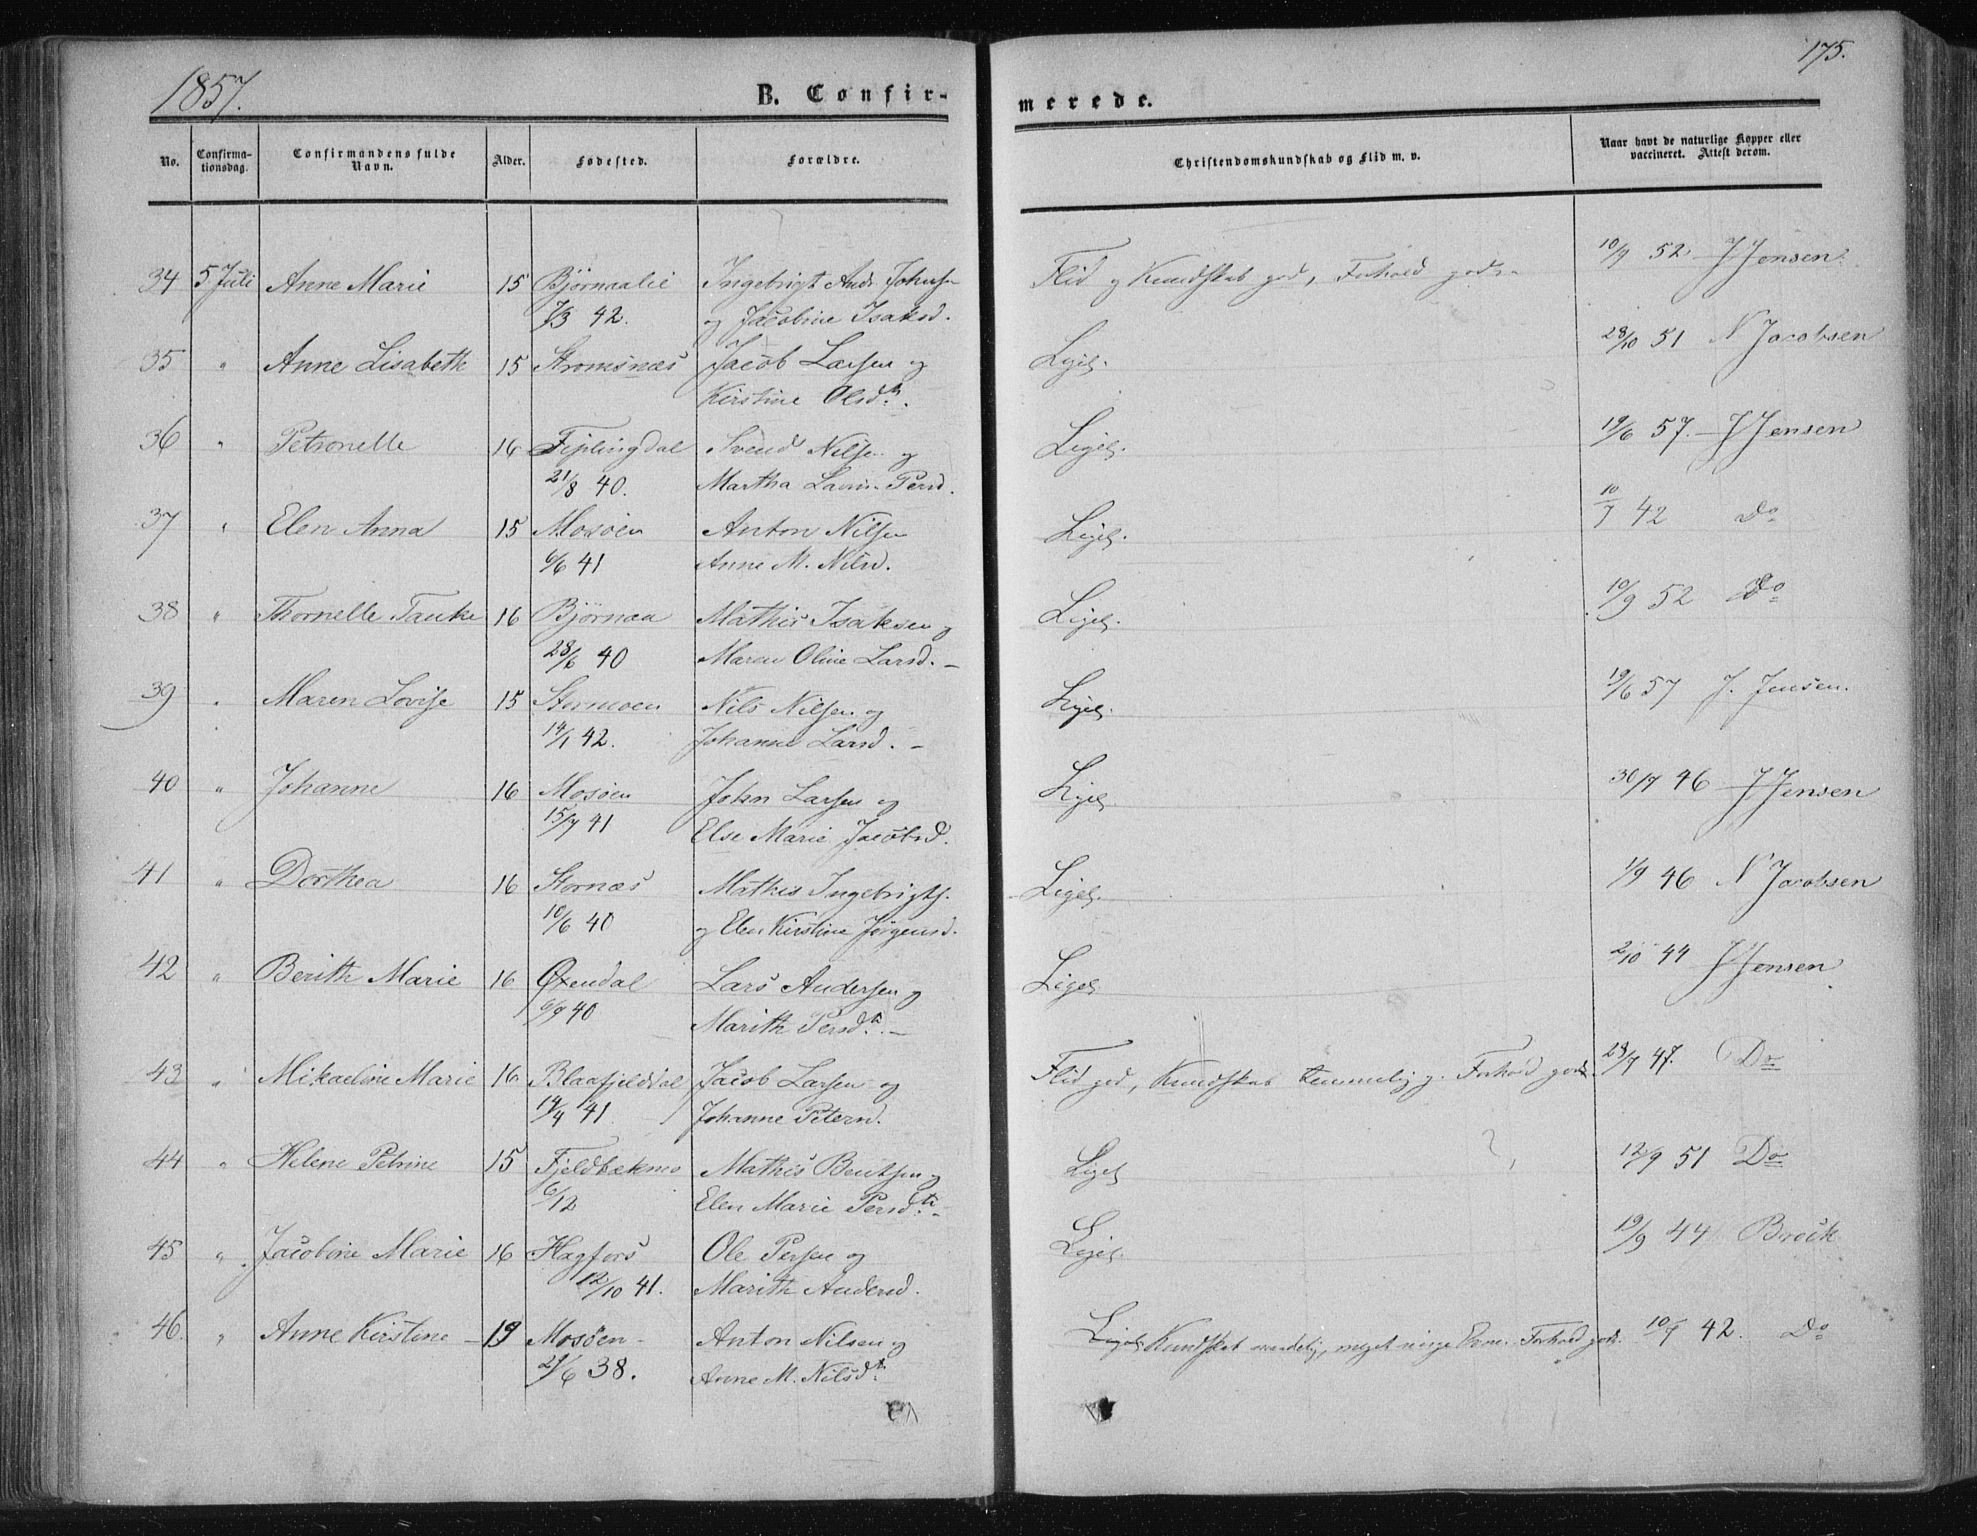 1857.
175.
B. Confir-
merede.
No.
Confirma-
tionsdag.
Confirmandens fulde
Navn.
Alder.
Fødested.
Forældre.
Christendomskundskab og Flid m. v.
Naar havt de naturlige Kopper eller
vaccineret. Attest derom.
34 5 Juli Anne Marie 15 Bjørnaalie Ingebrigt Andr. Johns. Flid og Kundskab god, Forhold godt 10/9 52 J Jensen
7/3 42. og Jacobine Isaksd.
35 " Anne Lisabeth 15 Stromsnæs Jacob Larsen og Ligel. 28/10 51 N Jacobsen
Kirstine Olsdr.
36 " Petronelle 16 Fiplingdal Svend Nilsen og Ligel. 19/6 57. J Jensen
21/8 40. Martha Persd.
37 " Elen Anna 15 Mosøen Anton Nilsen Ligel. 10/7 42 Do
6/6 41 Anne M. Nilsd.
38 " Thornelle Tauke 16 Bjørnaa Mathis Isaksen og Ligel. 10/9 52 Do
28/6 40 Maren Oline Larsd.
39 " Maren Lovise 15 Stormoen Nils Nilsen og Ligel. 19/6 57 J. Jensen.
14/1 42. Johanne Larsd.
40 " Johanne 16 Mosøen John Larsen og Ligel. 30/7 46 J Jensen
15/7 41 Else Marie Jacobsd.
41 " Dorthea 16 Stornæs Mathis Ingebrigts. Ligel. 1/9 46 N Jacobsen
10/6 40 og Elen Kirstine Jørgensd.
42 " Berith Marie 16 Øxendal Lars Andersen og Ligel. 2/10 44 J Jensen
6/9 40 Marith Persdr.
43 " Mikaeline Marie 16 Blaafjelddal Jacob Larsen og Flid god, Kundskab temmelig g. Forhold godt. 28/7 47. Do
14/4 41. Johanne Petersd.
44 " Helene Petrine 15 Fjeldbækmo Mathis Bentsen og Ligel. 12/9 51 Do
6/12 Elen Marie Persdtr.
45 " Jacobine Marie 16 Hagfors Ole Persen og Ligel. 19/9 44 Brock
12/10 41. Marith Andersd.
46. " Anne Kirstine 19 Mosøen Anton Nilsen og Kundskab maadelig, meget ringe Evne. Forhold godt. 10/7 42. Do
21/6 38. Anne M. Nilsdr.